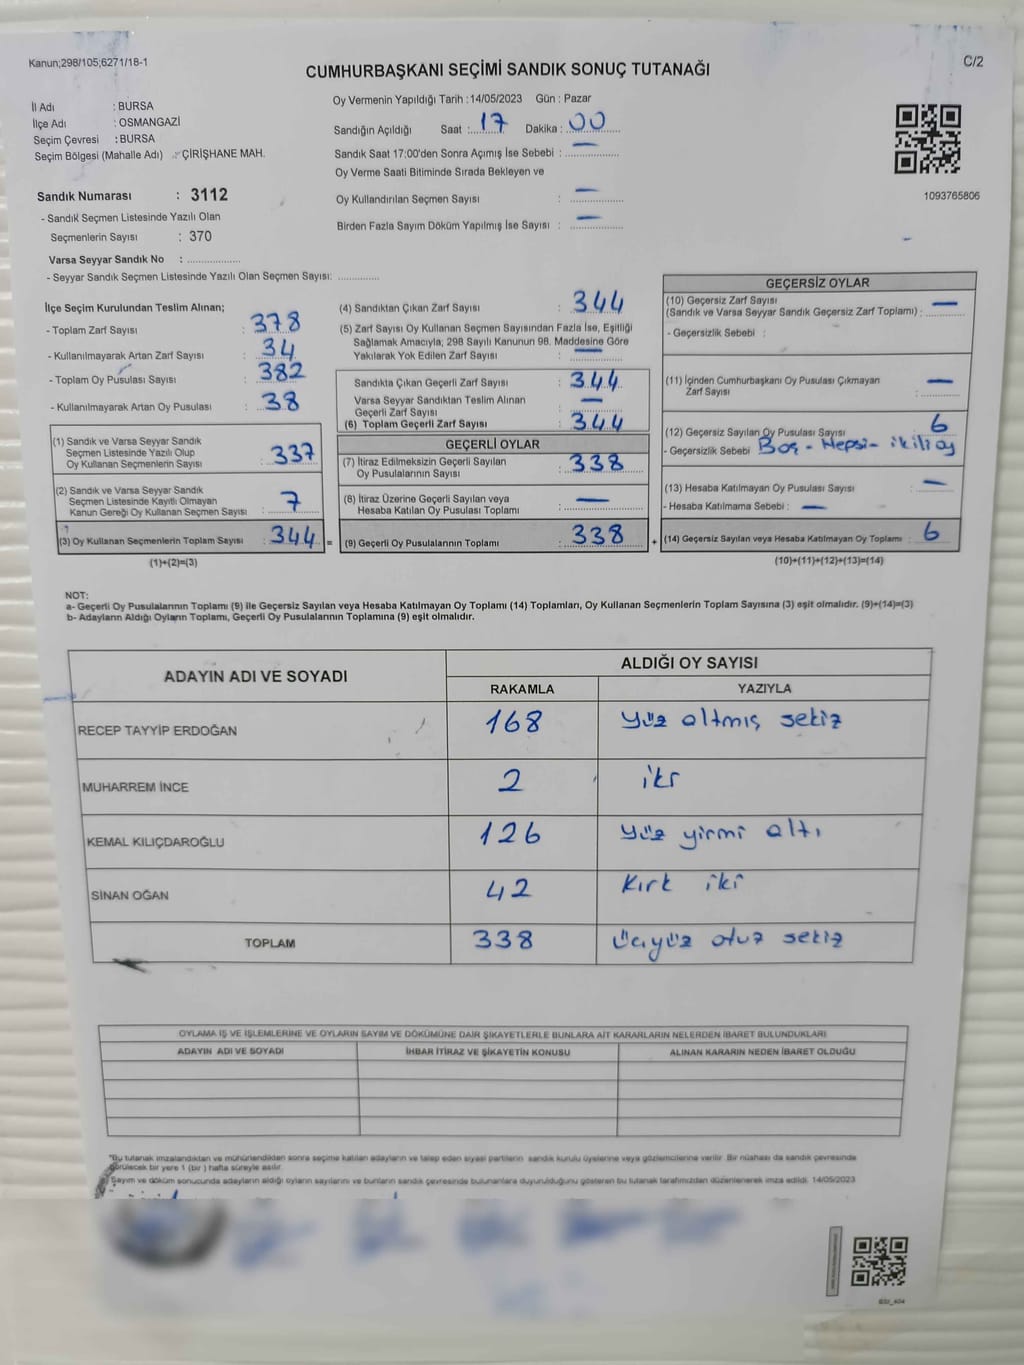 Kanun;298/105;6271/18-1
C/2
CUMHURBAŞKANI SEÇİMİ SANDIK SONUÇ TUTANAĞI
İl Adı : BURSA
İlçe Adı : OSMANGAZİ
Seçim Çevresi : BURSA
Seçim Bölgesi (Mahalle Adı) : ÇİRİŞHANE MAH.
Sandık Numarası : 3112
- Sandık Seçmen Listesinde Yazılı Olan
Seçmenlerin Sayısı : 370
Varsa Seyyar Sandık No : ..................
- Seyyar Sandık Seçmen Listesinde Yazılı Olan Seçmen Sayısı: ..............
Oy Vermenin Yapıldığı Tarih :14/05/2023 Gün : Pazar
Sandığın Açıldığı Saat : 17 Dakika : 00
Sandık Saat 17:00'den Sonra Açımış İse Sebebi : —
Oy Verme Saati Bitiminde Sırada Bekleyen ve
Oy Kullandırılan Seçmen Sayısı : —
Birden Fazla Sayım Döküm Yapılmış İse Sayısı : —
1093765806
İlçe Seçim Kurulundan Teslim Alınan;
- Toplam Zarf Sayısı : 378
- Kullanılmayarak Artan Zarf Sayısı : 34
- Toplam Oy Pusulası Sayısı : 382
- Kullanılmayarak Artan Oy Pusulası : 38
(1) Sandık ve Varsa Seyyar Sandık
Seçmen Listesinde Yazılı Olup
Oy Kullanan Seçmenlerin Sayısı : 337
(2) Sandık ve Varsa Seyyar Sandık
Seçmen Listesinde Kayıtlı Olmayan
Kanun Gereği Oy Kullanan Seçmen Sayısı : 7
(3) Oy Kullanan Seçmenlerin Toplam Sayısı : 344 =
(1)+(2)=(3)
(4) Sandıktan Çıkan Zarf Sayısı : 344
(5) Zarf Sayısı Oy Kullanan Seçmen Sayısından Fazla İse, Eşitliği
Sağlamak Amacıyla; 298 Sayılı Kanunun 98. Maddesine Göre
Yakılarak Yok Edilen Zarf Sayısı : —
Sandıkta Çıkan Geçerli Zarf Sayısı : 344
Varsa Seyyar Sandıktan Teslim Alınan
Geçerli Zarf Sayısı : —
(6) Toplam Geçerli Zarf Sayısı : 344
GEÇERLİ OYLAR
(7) İtiraz Edilmeksizin Geçerli Sayılan
Oy Pusulalarının Sayısı : 338
(8) İtiraz Üzerine Geçerli Sayılan veya
Hesaba Katılan Oy Pusulası Toplamı : —
(9) Geçerli Oy Pusulalarının Toplamı : 338 +
GEÇERSİZ OYLAR
(10) Geçersiz Zarf Sayısı
(Sandık ve Varsa Seyyar Sandık Geçersiz Zarf Toplamı) : —
- Geçersizlik Sebebi :
(11) İçinden Cumhurbaşkanı Oy Pusulası Çıkmayan
Zarf Sayısı : —
(12) Geçersiz Sayılan Oy Pusulası Sayısı : 6
- Geçersizlik Sebebi Boş - Hepsi - ikili oy
(13) Hesaba Katılmayan Oy Pusulası Sayısı : —
- Hesaba Katılmama Sebebi : —
(14) Geçersiz Sayılan veya Hesaba Katılmayan Oy Toplamı : 6
(10)+(11)+(12)+(13)=(14)
NOT:
a- Geçerli Oy Pusulalarının Toplamı (9) ile Geçersiz Sayılan veya Hesaba Katılmayan Oy Toplamı (14) Toplamları, Oy Kullanan Seçmenlerin Toplam Sayısına (3) eşit olmalıdır. (9)+(14)=(3)
b- Adayların Aldığı Oyların Toplamı, Geçerli Oy Pusulalarının Toplamına (9) eşit olmalıdır.
ADAYIN ADI VE SOYADI ALDIĞI OY SAYISI
RAKAMLA YAZIYLA
RECEP TAYYİP ERDOĞAN 168 yüz altmış sekiz
MUHARREM İNCE 2 iki
KEMAL KILIÇDAROĞLU 126 yüz yirmi altı
SİNAN OĞAN 42 kırk iki
TOPLAM 338 üçyüz otuz sekiz
OYLAMA İŞ VE İŞLEMLERİNE VE OYLARIN SAYIM VE DÖKÜMÜNE DAİR ŞİKAYETLERLE BUNLARA AİT KARARLARIN NELERDEN İBARET BULUNDUKLARI
ADAYIN ADI VE SOYADI İHBAR İTİRAZ VE ŞİKAYETİN KONUSU ALINAN KARARIN NEDEN İBARET OLDUĞU
"Bu tutanak imzalandıktan ve mühürlendikten sonra seçime katılan adayların ve talep eden siyasi partilerin sandık kurulu üyelerine veya gözlemcilerine verilir. Bir nüshası da sandık çevresinde
görülecek bir yere 1 (bir ) hafta süreyle asılır.
Sayım ve döküm sonucunda adayların aldığı oyların sayılarını ve bunların sandık çevresinde bulunanlara duyurulduğunu gösteren bu tutanak tarafımızdan düzenlenerek imza edildi. 14/05/2023